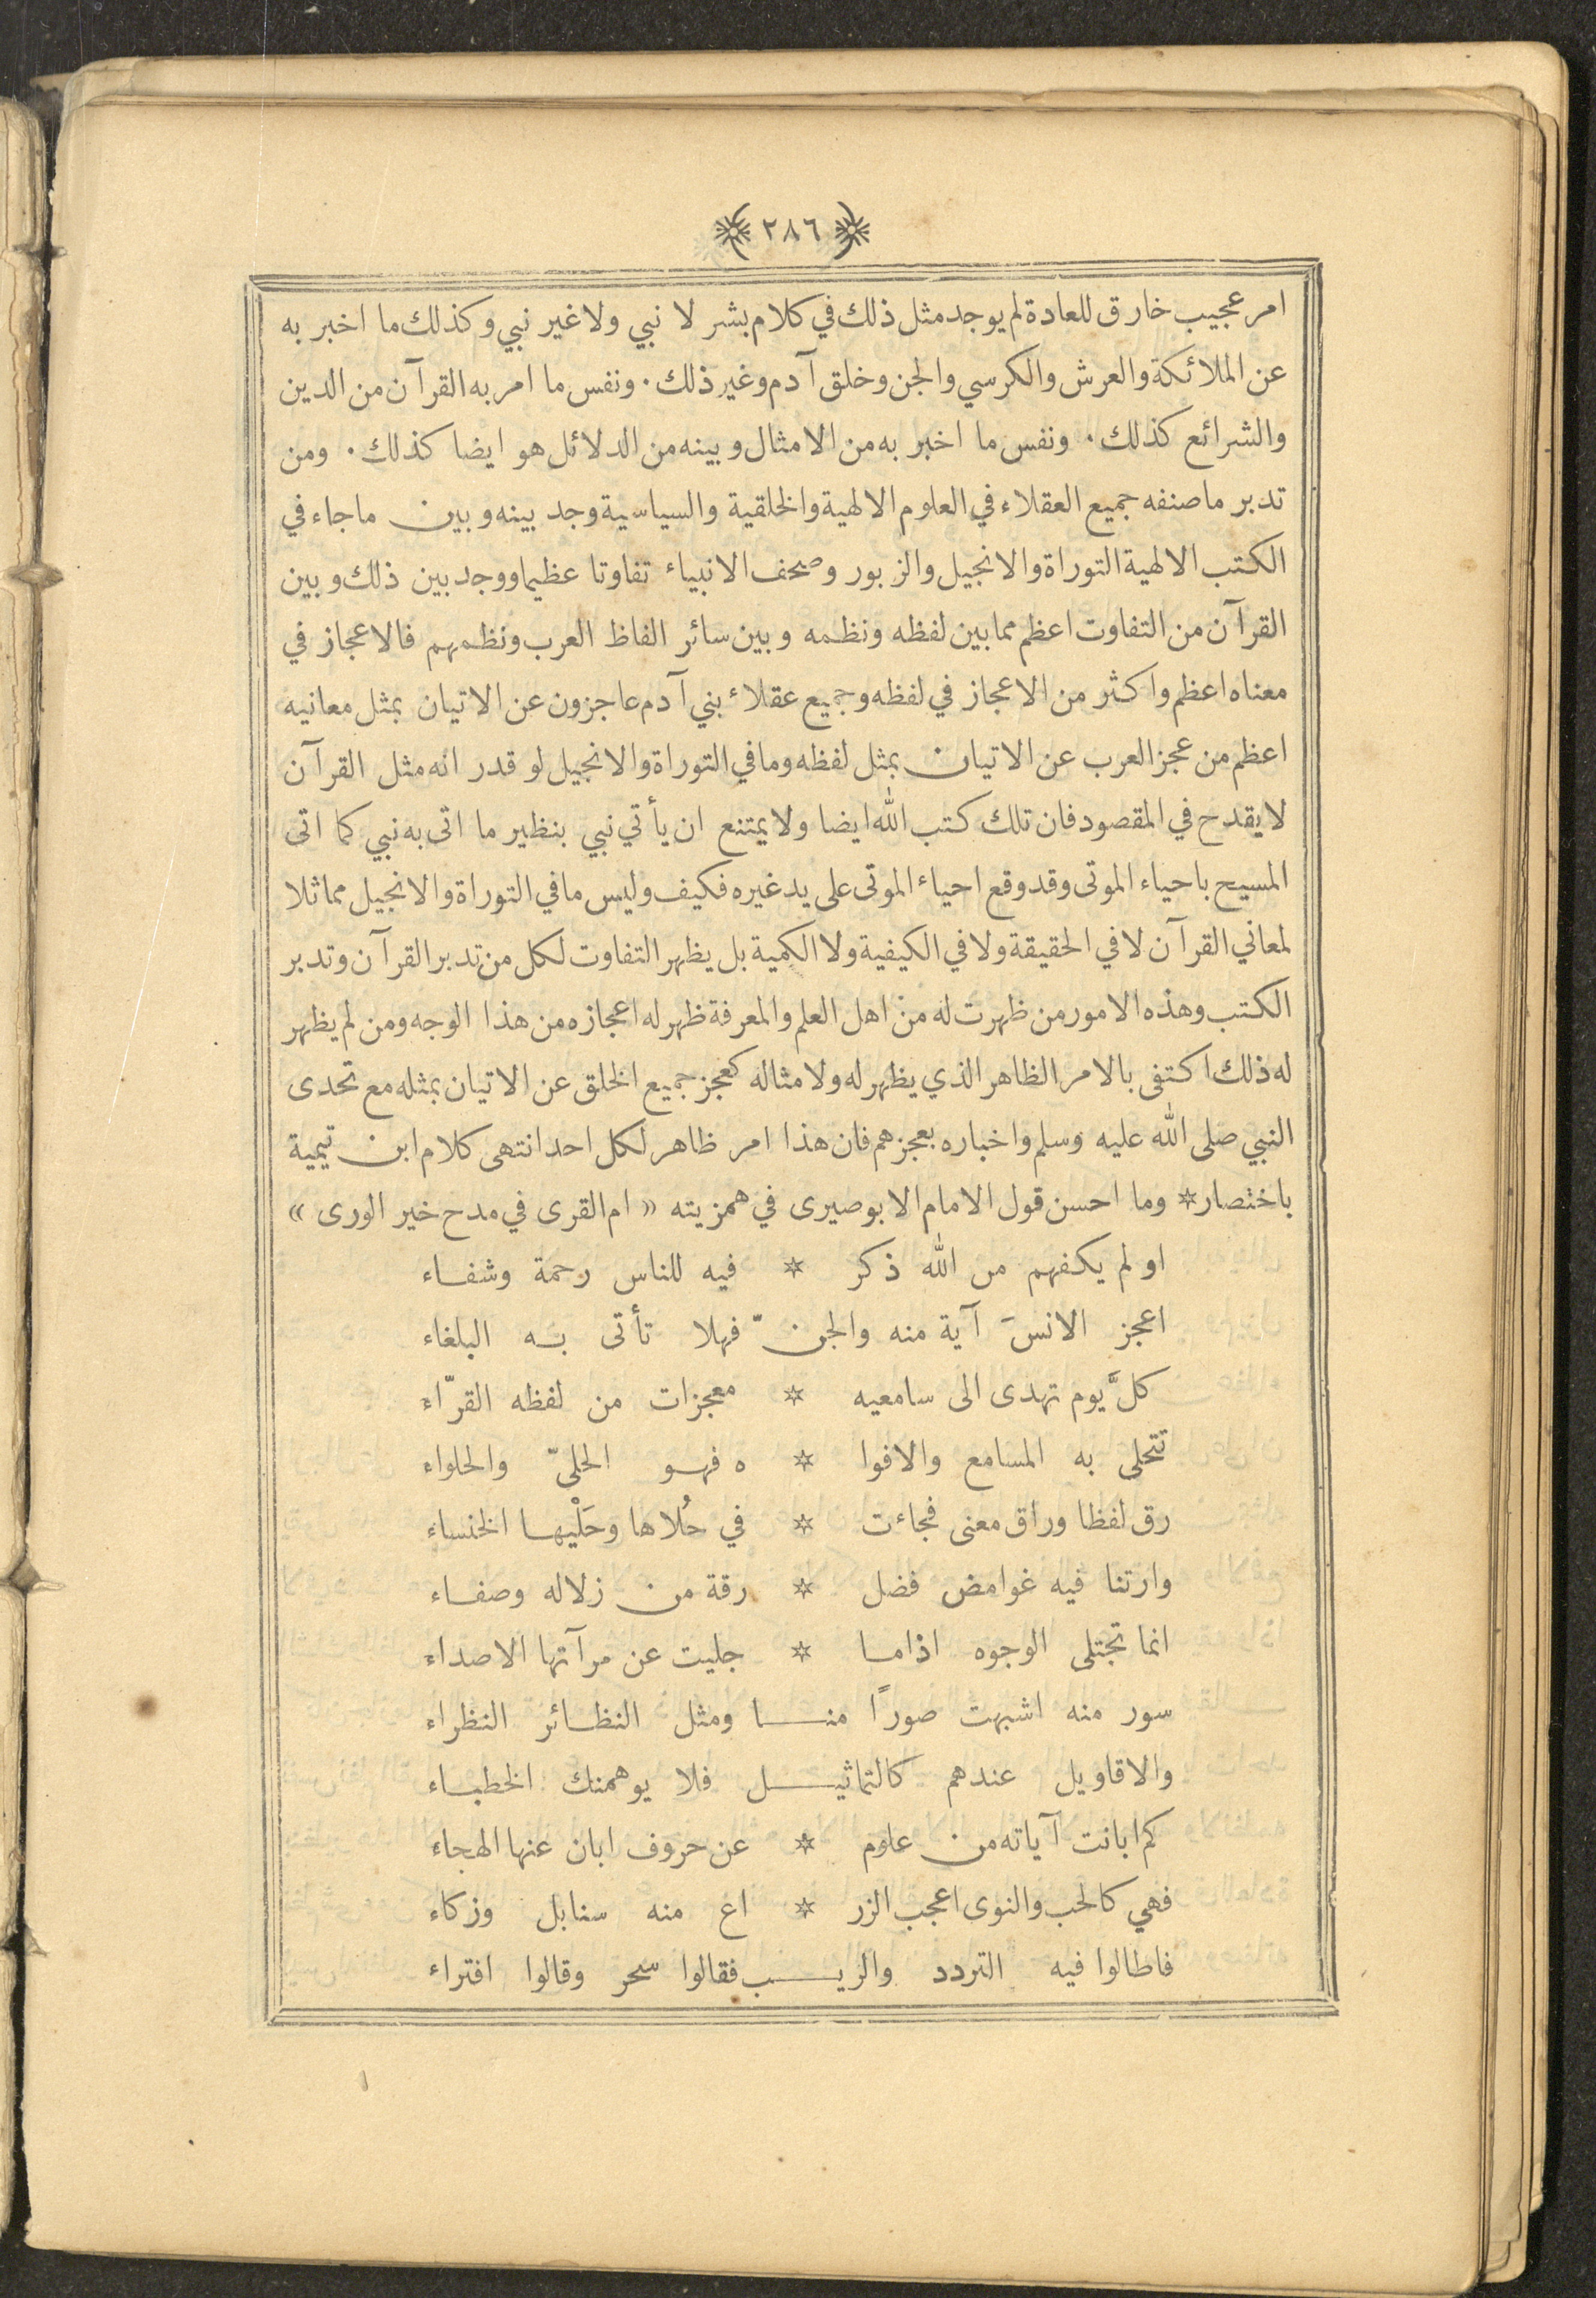 ٢٨٦
امر عجيب خارق للعادة لم يوجد مثل ذلك في كلام بشر لا نبي ولا غير نبي وكذلك ما اخبر به
عن الملائكة والعرش والكرسي والجن وخلق آدم وغير ذلك . ونفس ما امر به القرآن من الدين
والشرائع كذلك . ونفس ما اخبر به من الامثال وبينه من الدلائل هو ايضا كذلك . ومن
تدبر ما صنفه جميع العقلاء في العلوم الالهية والخلقية والسياسية وجد بينه وبين ما جاء في
الكتب الالهية التوراة والانجيل والزبور وصحف الانبياء تفاوتا عظيما ووجد بين ذلك وبين
القرآن من التفاوت اعظم مما بين لفظه ونظمه وبين سائر الفاظ العرب ونظمهم فالاعجاز في
معناه اعظم واكثر من الاعجاز في لفظه وجميع عقلاء بني آدم عاجزون عن الاتيان بمثل معانيه
اعظم من عجز العرب عن الاتيان بمثل لفظه وما في التوراة والانجيل لو قدر انه مثل القرآن
لا يقدح في المقصود فان تلك كتب الله ايضا ولا يمتنع ان يأتي نبي بنظير ما اتى به نبي كما اتى
المسيح باحياء الموتى وقد وقع احياء الموتى على يد غيره فكيف وليس ما في التوراة والانجيل مماثلا
لمعاني القرآن لا في الحقيقة ولا في الكيفية ولا الكمية بل يظهر التفاوت لكل من تدبر القرآن وتدبر
الكتب وهذه الامور من ظهرت له من اهل العلم والمعرفة ظهر له اعجازه من هذا الوجه ومن لم يظهر
له ذلك اكتفى بالامر الظاهر الذي يظهر له ولا مثاله كعجز جميع الخلق عن الاتيان بمثله مع تحدى
النبي صلى الله عليه وسلم واخباره بعجزهم فان هذا امر ظاهر لكل احد انتهى كلام ابن تيمية
باختصار * وما احسن قول الامام الابوصيرى في همزيته « ام القرى في مدح خير الورى »
او لم يكفهم من الله ذكر * فيه للناس رحمة وشفاء
اعجز الانسَ آية منه والجنّ فهلا تأتى به البلغاء
كلَّ يوم تهدى الى سامعيه * معجزات من لفظه القرّاء
تتحلى به المسامع والافوا * ه فهو الحليّ والحلواء
رق لفظا وراق معنى فجاءت * في حُلاها وحَلْيها الخنساء
وارتنا فيه غوامض فضل * رقة من زلاله وصفاء
انما تجتلى الوجوه اذا ما * جليت عن مرآتها الاصداء
سور منه اشبهت صورًا منا ومثل النظائر النظراء
والاقاويل عندهم كالتماثيل فلا يوهمنك الخطباء
كم ابانت آياته من علوم * عن حروف ابان عنها الهجاء
فهي كالحب والنوى اعجب الزر * اع منه سنابل وزكاء
فاطالوا فيه التردد والريب فقالوا سحر وقالوا افتراء